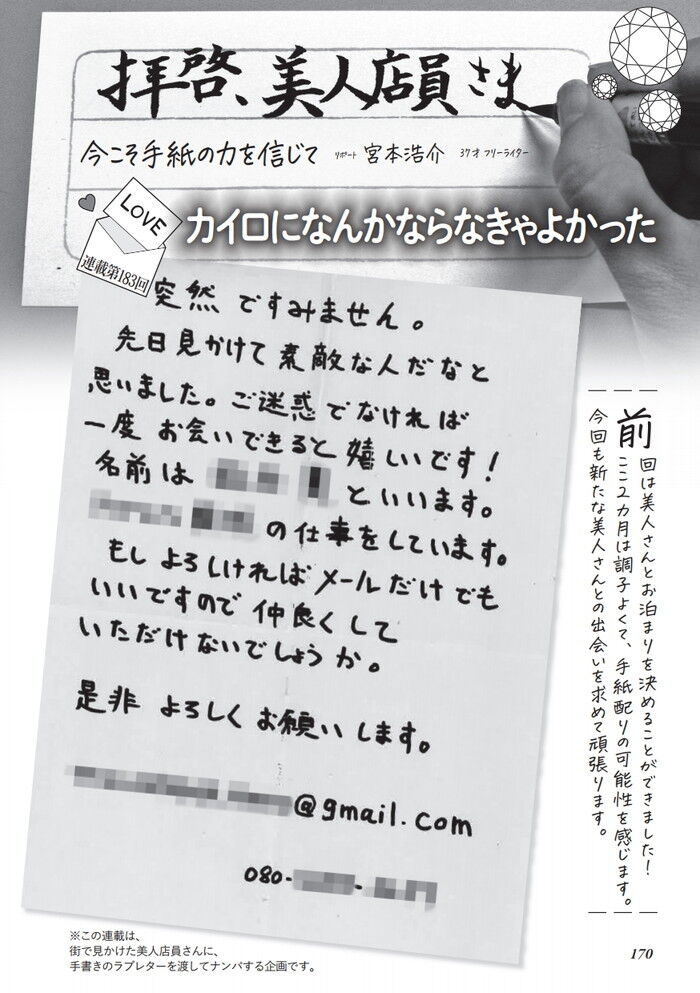 拝啓、美人店員さま
今こそ手紙の力を信じて リポート 宮本浩介 37才 フリーライター
LOVE
連載第183回
カイロになんかならなきゃよかった
突然ですみません。
先日見かけて素敵な人だなと
思いました。ご迷惑でなければ
一度お会いできると嬉しいです!
名前は
といいます。
の仕事をしています。
もしよろしければメールだけでも
いいですので仲良くして
いただけないでしょうか。
是非よろしくお願いします。
@gmail.com
080-
前回は美人さんとお泊まりを決めることができました!
ここ2カ月は調子よくて、手紙配りの可能性を感じます。
今回も新たな美人さんとの出会いを求めて頑張ります。
※この連載は、
街で見かけた美人店員さんに、
手書きのラブレターを渡してナンパする企画です。
170